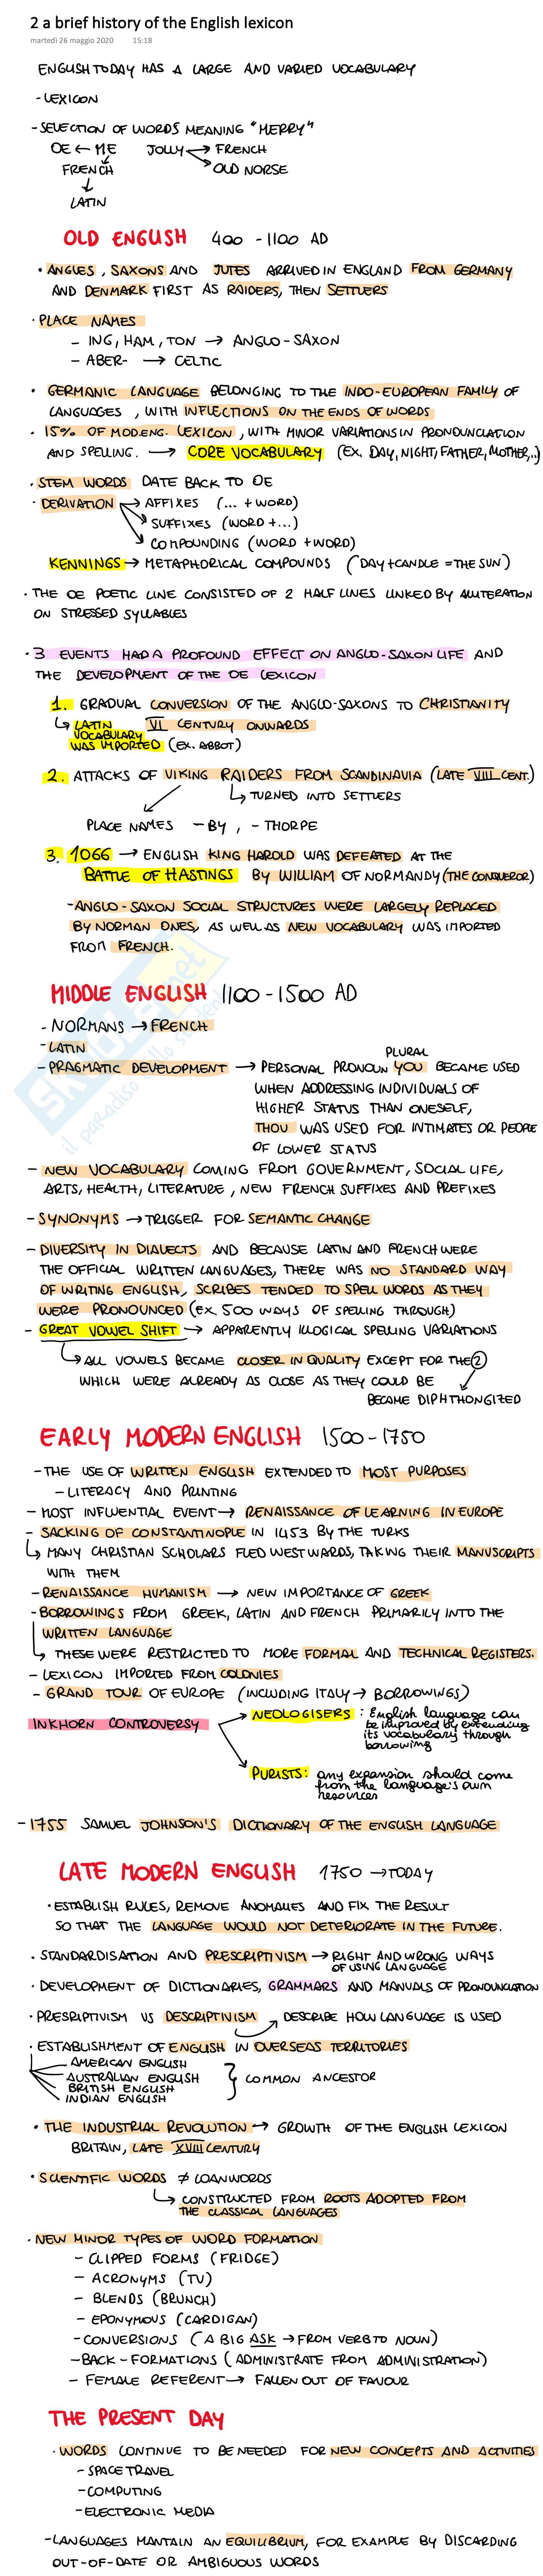 2 a brief history of the English lexicon
martedì 26 maggio 2020 15:18
ENGLISH TODAY HAS A LARGE AND VARIED VOCABULARY
- LEXICON
- SELECTION OF WORDS MEANING "MERRY"
OE ← ME JOLLY → FRENCH
FRENCH → OLD NORSE
↓
LATIN
OLD ENGLISH 400 - 1100 AD
• ANGLES, SAXONS AND JUTES ARRIVED IN ENGLAND FROM GERMANY
AND DENMARK FIRST AS RAIDERS, THEN SETTLERS
• PLACE NAMES
- ING, HAM, TON → ANGLO-SAXON
- ABER- → CELTIC
• GERMANIC LANGUAGE BELONGING TO THE INDO-EUROPEAN FAMILY OF
LANGUAGES, WITH INFLECTIONS ON THE ENDS OF WORDS
• 15% OF MOD.ENG. LEXICON, WITH MINOR VARIATIONS IN PRONOUNCIATION
AND SPELLING. → CORE VOCABULARY (EX. DAY, NIGHT, FATHER, MOTHER,..)
• STEM WORDS DATE BACK TO OE
• DERIVATION → AFFIXES (... + WORD)
SUFFIXES (WORD + ...)
COMPOUNDING (WORD + WORD)
KENNINGS → METAPHORICAL COMPOUNDS (DAY + CANDLE = THE SUN)
• THE OE POETIC LINE CONSISTED OF 2 HALF LINES LINKED BY ALLITERATION
ON STRESSED SYLLABLES
• 3 EVENTS HAD A PROFOUND EFFECT ON ANGLO-SAXON LIFE AND
THE DEVELOPMENT OF THE OE LEXICON
1. GRADUAL CONVERSION OF THE ANGLO-SAXONS TO CHRISTIANITY
↳ LATIN VI CENTURY ONWARDS
VOCABULARY
WAS IMPORTED (EX. ABBOT)
2. ATTACKS OF VIKING RAIDERS FROM SCANDINAVIA (LATE VIII CENT.)
↳ TURNED INTO SETTLERS
PLACE NAMES - BY, - THORPE
3. 1066 → ENGLISH KING HAROLD WAS DEFEATED AT THE
BATTLE OF HASTINGS BY WILLIAM OF NORMANDY (THE CONQUEROR)
- ANGLO-SAXON SOCIAL STRUCTURES WERE LARGELY REPLACED
BY NORMAN ONES, AS WELL AS NEW VOCABULARY WAS IMPORTED
FROM FRENCH.
MIDDLE ENGLISH 1100 - 1500 AD
- NORMANS → FRENCH
- LATIN
PLURAL
- PRAGMATIC DEVELOPMENT → PERSONAL PRONOUN YOU BECAME USED
WHEN ADDRESSING INDIVIDUALS OF
HIGHER STATUS THAN ONESELF,
THOU WAS USED FOR INTIMATES OR PEOPLE
OF LOWER STATUS
- NEW VOCABULARY COMING FROM GOVERNMENT, SOCIAL LIFE,
ARTS, HEALTH, LITERATURE, NEW FRENCH SUFFIXES AND PREFIXES
- SYNONYMS → TRIGGER FOR SEMANTIC CHANGE
- DIVERSITY IN DIALECTS AND BECAUSE LATIN AND FRENCH WERE
THE OFFICIAL WRITTEN LANGUAGES, THERE WAS NO STANDARD WAY
OF WRITING ENGLISH, SCRIBES TENDED TO SPELL WORDS AS THEY
WERE PRONOUNCED (EX. 500 WAYS OF SPELLING THROUGH)
- GREAT VOWEL SHIFT → APPARENTLY ILLOGICAL SPELLING VARIATIONS
↳ ALL VOWELS BECAME CLOSER IN QUALITY EXCEPT FOR THE 2
WHICH WERE ALREADY AS CLOSE AS THEY COULD BE
BECAME DIPHTHONGIZED
EARLY MODERN ENGLISH 1500 - 1750
- THE USE OF WRITTEN ENGLISH EXTENDED TO MOST PURPOSES
- LITERACY AND PRINTING
- MOST INFLUENTIAL EVENT → RENAISSANCE OF LEARNING IN EUROPE
- SACKING OF CONSTANTINOPLE IN 1453 BY THE TURKS
↳ MANY CHRISTIAN SCHOLARS FLED WESTWARDS, TAKING THEIR MANUSCRIPTS
WITH THEM
- RENAISSANCE HUMANISM → NEW IMPORTANCE OF GREEK
- BORROWINGS FROM GREEK, LATIN AND FRENCH PRIMARILY INTO THE
WRITTEN LANGUAGE
↳ THESE WERE RESTRICTED TO MORE FORMAL AND TECHNICAL REGISTERS.
- LEXICON IMPORTED FROM COLONIES
- GRAND TOUR OF EUROPE (INCLUDING ITALY → BORROWINGS)
INKHORN CONTROVERSY → NEOLOGISERS : English language can
be improved by extending
its vocabulary through
borrowing
PURISTS: any expansion should come
from the language's own
resources
- 1755 SAMUEL JOHNSON'S DICTIONARY OF THE ENGLISH LANGUAGE
LATE MODERN ENGLISH 1750 → TODAY
• ESTABLISH RULES, REMOVE ANOMALIES AND FIX THE RESULT
SO THAT THE LANGUAGE WOULD NOT DETERIORATE IN THE FUTURE.
• STANDARDISATION AND PRESCRIPTIVISM → RIGHT AND WRONG WAYS
OF USING LANGUAGE
• DEVELOPMENT OF DICTIONARIES, GRAMMARS AND MANUALS OF PRONOUNCIATION
• PRESRIPTIVISM VS DESCRIPTIVISM → DESCRIBE HOW LANGUAGE IS USED
• ESTABLISHMENT OF ENGLISH IN OVERSEAS TERRITORIES
AMERICAN ENGLISH
AUSTRALIAN ENGLISH } COMMON ANCESTOR
BRITISH ENGLISH
INDIAN ENGLISH
• THE INDUSTRIAL REVOLUTION → GROWTH OF THE ENGLISH LEXICON
BRITAIN, LATE XVIII CENTURY
• SCIENTIFIC WORDS ≠ LOANWORDS
↳ CONSTRUCTED FROM ROOTS ADOPTED FROM
THE CLASSICAL LANGUAGES
• NEW MINOR TYPES OF WORD FORMATION
- CLIPPED FORMS (FRIDGE)
- ACRONYMS (TV)
- BLENDS (BRUNCH)
- EPONYMOUS (CARDIGAN)
- CONVERSIONS (A BIG ASK → FROM VERB TO NOUN)
- BACK-FORMATIONS (ADMINISTRATE FROM ADMINISTRATION)
- FEMALE REFERENT → FALLEN OUT OF FAVOUR
THE PRESENT DAY
• WORDS CONTINUE TO BE NEEDED FOR NEW CONCEPTS AND ACTIVITIES
- SPACE TRAVEL
- COMPUTING
- ELECTRONIC MEDIA
- LANGUAGES MANTAIN AN EQUILIBRIUM, FOR EXAMPLE BY DISCARDING
OUT-OF-DATE OR AMBIGUOUS WORDS